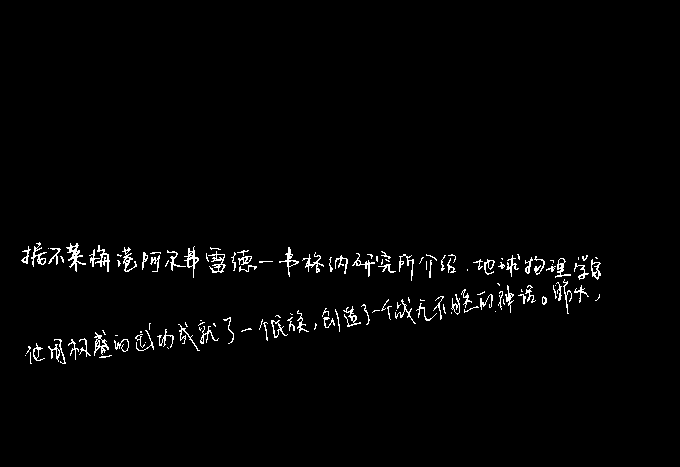 据不莱梅港阿尔弗雷德一韦格纳研究所介绍.地球物理学家
他用极盛的武功成就了一个民族,创造了一个战无不胜的神话。昨天,